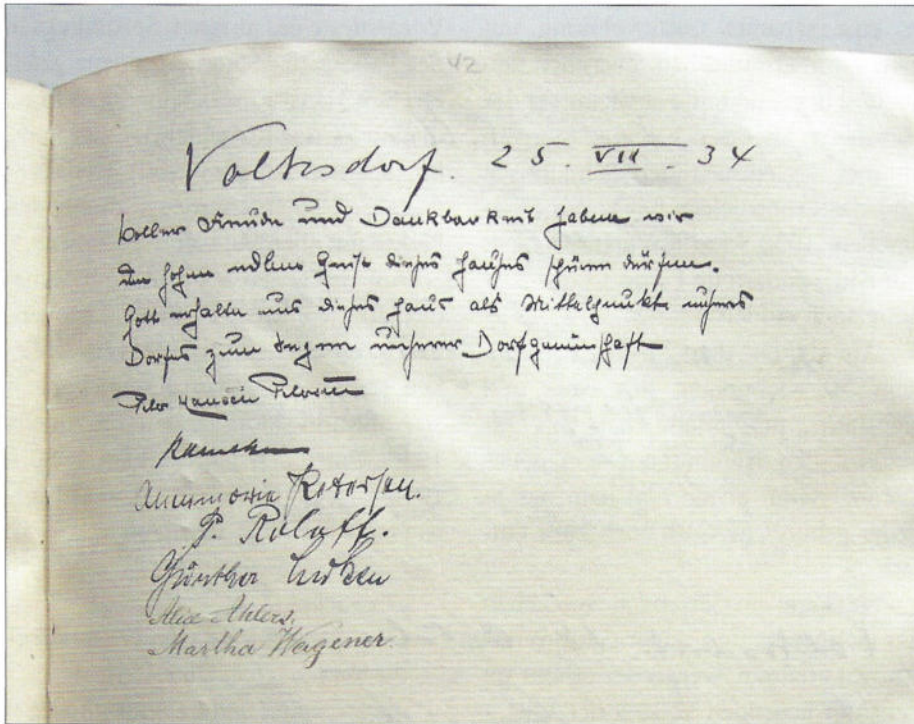 42
Volksdorf. 25. VII. 34
Voller Freude und Dankbarkeit haben wir
den hohen edlen Geist dieses Hauses spüren dürfen.
Gott erhalte uns dieses Haus als Mittelpunkt unseres
Dorfes zum Segen unserer Dorfgemeinschaft
Annemarie Petersen.
P. Roloff.
Günther
Alice Ahlers,
Martha Wagener.